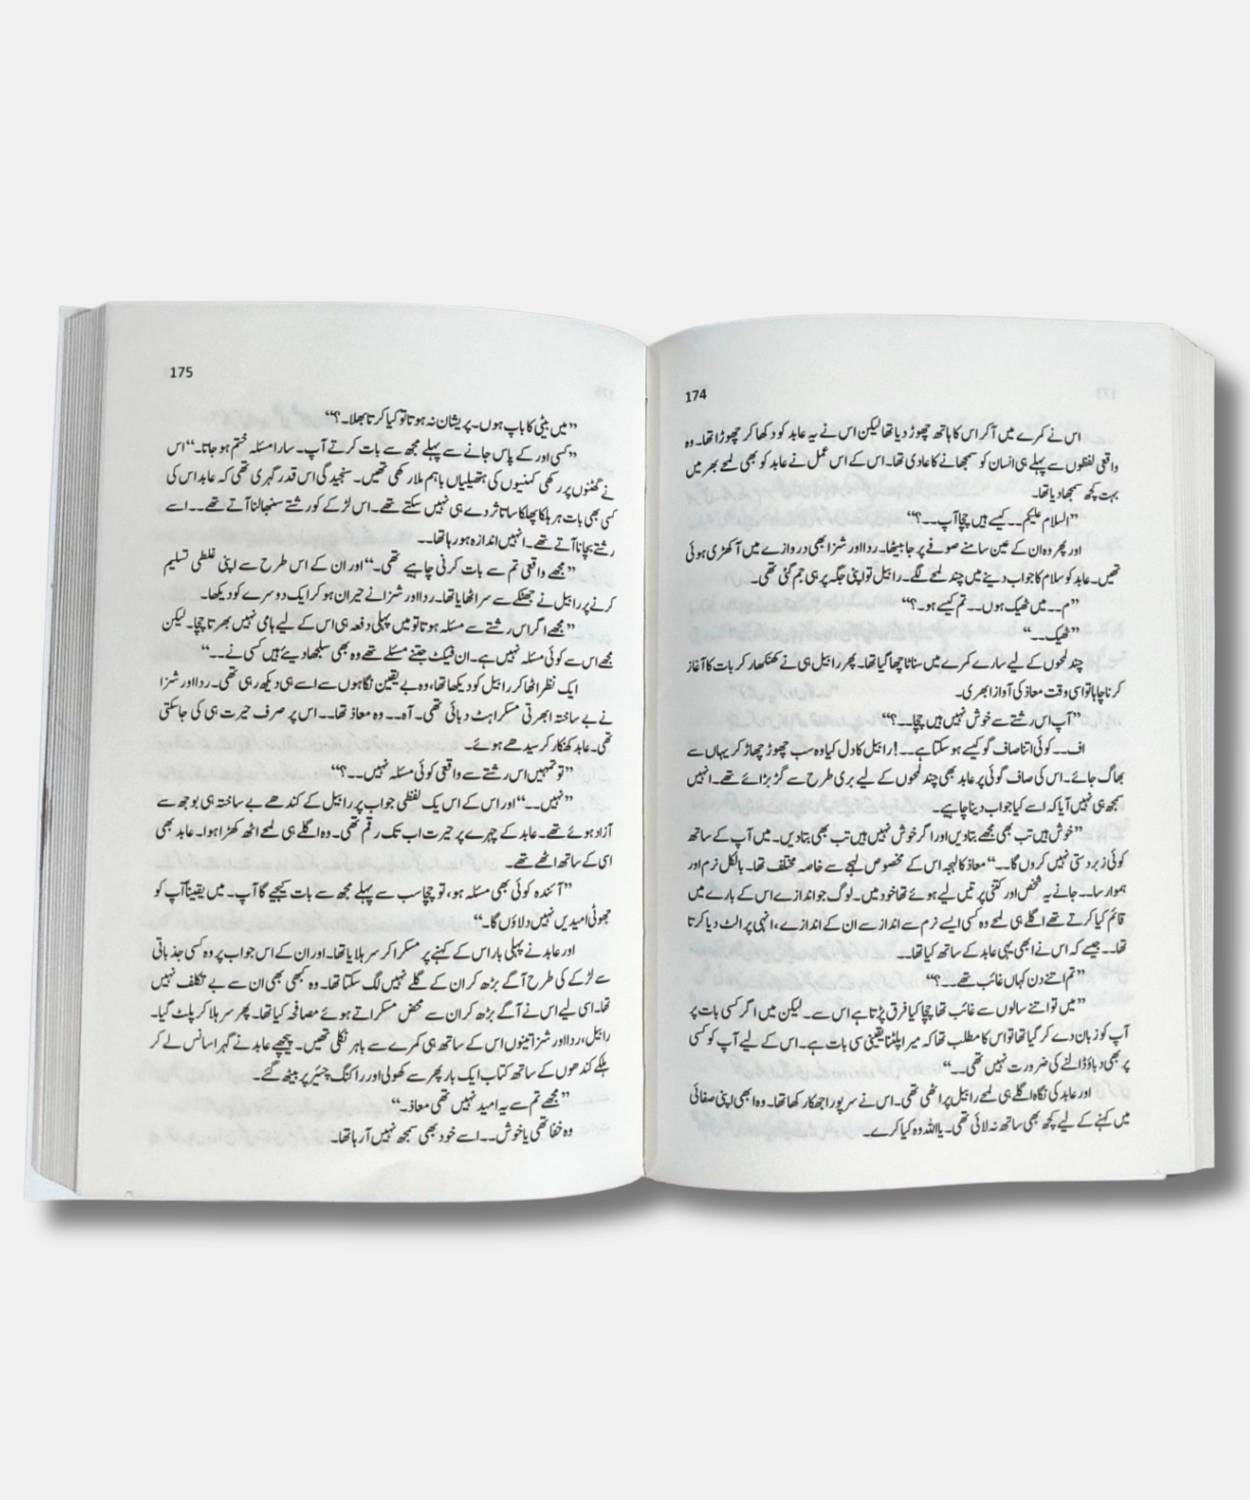 174
اس نے کمرے میں آکر اس کا ہاتھ چھوڑ دیا تھا لیکن اس نے یہ عابد کو دکھا کر چھوڑا تھا۔ وہ
واقعی لفظوں سے پہلے ہی انسان کو سمجھانے کا عادی تھا۔ اس کے اس عمل نے عابد کو بھی لمحے بھر میں
بہت کچھ سمجھا دیا تھا۔
”السلام علیکم۔۔ کیسے ہیں چچا آپ۔۔؟“
اور پھر وہ ان کے عین سامنے صوفے پر جا بیٹھا۔ ردا اور شزا بھی دروازے میں آکھڑی ہوئی
تھیں۔ عابد کو سلام کا جواب دینے میں چند لمحے لگے۔ رابیل تو اپنی جگہ پر ہی جم گئی تھی۔
”م۔۔ میں ٹھیک ہوں۔۔ تم کیسے ہو۔؟“
”ٹھیک۔۔“
چند لمحوں کے لیے سارے کمرے میں سناٹا چھا گیا تھا۔ پھر رابیل ہی نے کھنکھار کر بات کا آغاز
کرنا چاہا تو اسی وقت معاذ کی آواز ابھری۔
”آپ اس رشتے سے خوش نہیں ہیں چچا۔۔؟“
اف۔۔ کوئی اتنا صاف گو کیسے ہو سکتا ہے۔۔! رابیل کا دل کیا وہ سب چھوڑ چھاڑ کر یہاں سے
بھاگ جائے۔ اس کی صاف گوئی پر عابد بھی چند لمحوں کے لیے بری طرح سے گڑبڑائے تھے۔ انہیں
سمجھ ہی نہیں آیا کہ اسے کیا جواب دینا چاہیے۔
”خوش ہیں تب بھی مجھے بتا دیں اور اگر خوش نہیں ہیں تب بھی بتا دیں۔ میں آپ کے ساتھ
کوئی زبردستی نہیں کروں گا۔۔“ معاذ کا لہجہ اس کے مخصوص لہجے سے خاصہ مختلف تھا۔ بالکل نرم اور
ہموار سا۔۔ جانے یہ شخص اور کتنی پرتیں لیے ہوئے تھا خود میں۔ لوگ جو اندازے اس کے بارے میں
قائم کیا کرتے تھے اگلے ہی لمحے وہ کسی ایسے نرم سے انداز سے ان کے اندازے، انہی پر الٹ دیا کرتا
تھا۔۔ جیسے کہ اس نے ابھی یہی عابد کے ساتھ کیا تھا۔۔
”تم اتنے دن کہاں غائب تھے۔۔؟“
”میں تو اتنے سالوں سے غائب تھا چچا کیا فرق پڑتا ہے اس سے۔ لیکن میں اگر کسی بات پر
آپ کو زبان دے کر گیا تھا تو اس کا مطلب تھا کہ میرا پلٹنا یقینی سی بات ہے۔ اس کے لیے آپ کو کسی
پر بھی دباؤ ڈالنے کی ضرورت نہیں تھی۔۔“
اور عابد کی نگاہ اگلے ہی لمحے رابیل پر اٹھی تھی۔ اس نے سر پورا جھکا رکھا تھا۔ وہ ابھی اپنی صفائی
میں کہنے کے لیے کچھ بھی ساتھ نہ لائی تھی۔ یا اللہ وہ کیا کرے۔
175
”میں بیٹی کا باپ ہوں۔ پریشان نہ ہوتا تو کیا کرتا بھلا۔؟“
”کسی اور کے پاس جانے سے پہلے مجھ سے بات کرتے آپ۔ سارا مسئلہ ختم ہو جاتا۔“ اس
نے گھٹنوں پر رکھی کہنیوں کی ہتھیلیاں باہم ملا رکھی تھیں۔ سنجیدگی اس قدر گہری تھی کہ عابد اس کی
کسی بھی بات ہر ہلکا پھلکا سا تاثر دے ہی نہیں سکتے تھے۔ اس لڑکے کو رشتے سنبھالنا آتے تھے۔۔ اسے
رشتے بچانا آتے تھے۔ انہیں اندازہ ہو رہا تھا۔۔
”مجھے واقعی تم سے بات کرنی چاہیے تھی۔“ اور ان کے اس طرح سے اپنی غلطی تسلیم
کرنے پر رابیل نے جھٹکے سے سر اٹھایا تھا۔ ردا اور شزا نے حیران ہو کر ایک دوسرے کو دیکھا۔
”مجھے اگر اس رشتے سے مسئلہ ہوتا تو میں پہلی دفعہ ہی اس کے لیے ہامی نہیں بھرتا چچا۔ لیکن
مجھے اس سے کوئی مسئلہ نہیں ہے۔ ان فیکٹ جتنے مسئلے تھے وہ بھی سلجھا دیئے ہیں کسی نے۔۔“
ایک نظر اٹھا کر رابیل کو دیکھا تھا، وہ بے یقین نگاہوں سے اسے ہی دیکھ رہی تھی۔ ردا اور شزا
نے بے ساختہ ابھرتی مسکراہٹ دبائی تھی۔ آہ۔۔ وہ معاذ تھا۔۔ اس پر صرف حیرت ہی کی جا سکتی
تھی۔ عابد کھنکار کر سیدھے ہوئے۔
”تو تمہیں اس رشتے سے واقعی کوئی مسئلہ نہیں۔۔؟“
”نہیں۔۔“ اور اس کے اس یک لفظی جواب پر رابیل کے کندھے بے ساختہ ہی بوجھ سے
آزاد ہوئے تھے۔ عابد کے چہرے پر حیرت اب تک رقم تھی۔ وہ اگلے ہی لمحے اٹھ کھڑا ہوا۔ عابد بھی
اسی کے ساتھ اٹھے تھے۔
”آئندہ کوئی بھی مسئلہ ہو، تو چچا سب سے پہلے مجھ سے بات کیجیے گا آپ۔ میں یقیناً آپ کو
جھوٹی امیدیں نہیں دلاؤں گا۔“
اور عابد نے پہلی بار اس کے کہنے پر مسکرا کر سر ہلایا تھا۔ اور ان کے اس جواب پر وہ کسی جذباتی
سے لڑکے کی طرح آگے بڑھ کر ان کے گلے نہیں لگ سکتا تھا۔ وہ کبھی بھی ان سے بے تکلف نہیں
تھا۔ اسی لیے اس نے آگے بڑھ کر ان سے محض مسکراتے ہوئے مصافحہ کیا تھا۔ پھر سر ہلا کر پلٹ گیا۔
رابیل، ردا اور شزا تینوں اس کے ساتھ ہی کمرے سے باہر نکلی تھیں۔ پیچھے عابد نے گہرا سانس لے کر
ہلکے کندھوں کے ساتھ کتاب ایک بار پھر سے کھولی اور راکنگ چیئر پر بیٹھ گئے۔
”مجھے تم سے یہ امید نہیں تھی معاذ۔“
وہ خفا تھی یا خوش۔۔ اسے خود بھی سمجھ نہیں آرہا تھا۔